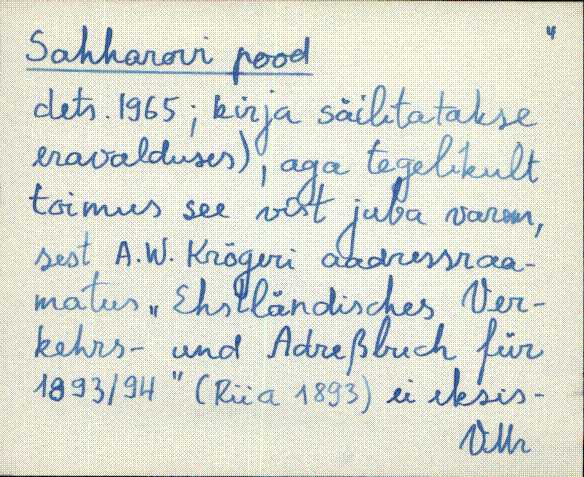 4
Sahharovi pood
dets. 1965; kirja säilitatakse
eravalduses), aga tegelikult
toimus see vist juba varem,
sest A.W. Krögeri aadressraa-
matus „Ehstländisches Ver-
kehrs- und Adreßbuch für
1893/94" (Riia 1893) ei eksis-